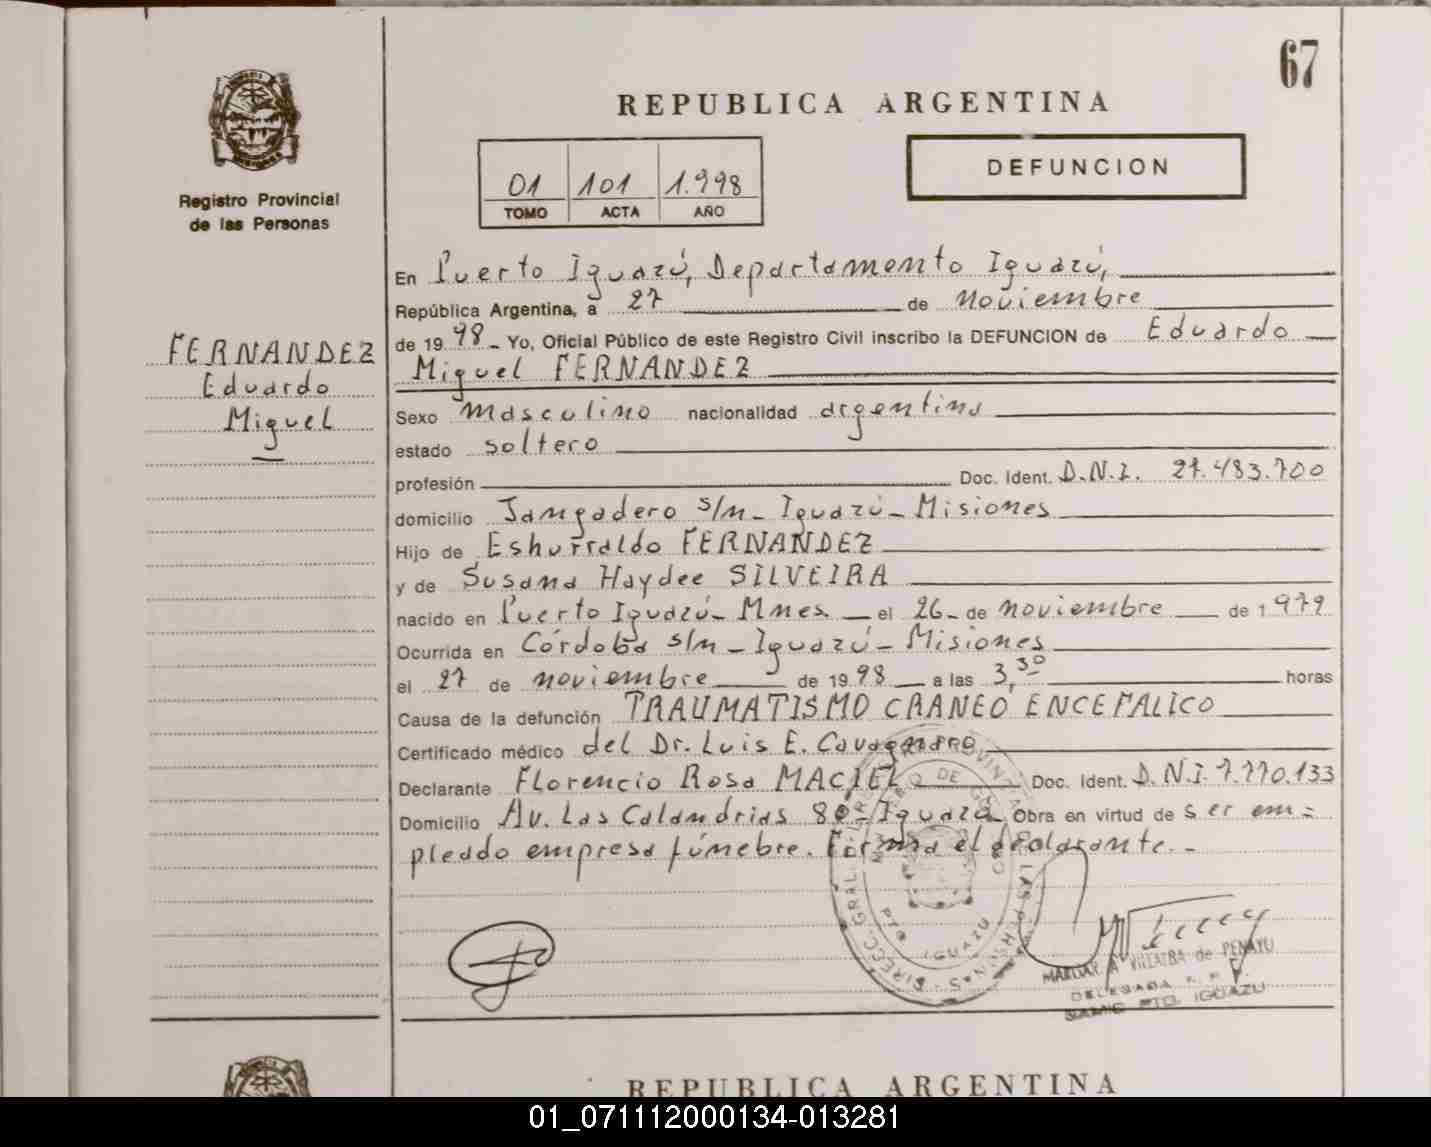 67
REPUBLICA ARGENTINA
DEFUNCION
01 101 1.998
TOMO ACTA AÑO
Registro Provincial
de las Personas
FERNANDEZ
Eduardo
Miguel
En Puerto Iguazú, Departamento Iguazú,
República Argentina, a 27 de noviembre
de 19 98 - Yo, Oficial Público de este Registro Civil inscribo la DEFUNCION de Eduardo
Miguel FERNANDEZ
Sexo masculino nacionalidad argentina
estado soltero
profesión Doc. Ident. D.N.I. 27.483.700
domicilio Jangadero s/n - Iguazú - Misiones
Hijo de FERNANDEZ
y de Susana Haydee SILVEIRA
nacido en Puerto Iguazú - Mnes. el 26 - de noviembre de 1 979
Ocurrida en Córdoba s/n - Iguazú - Misiones
el 27 de noviembre de 19 98 a las 3,30 horas
Causa de la defunción TRAUMATISMO CRANEO ENCEFALICO
Certificado médico del Dr. Luis E.
Declarante Florencio Rosa MACIEL Doc. Ident. D.N.I. 7.770.133
Domicilio Av. Las Calandrias 80 - Iguazú - Obra en virtud de ser em=
pleado empresa fúnebre. Firma el declarante. -
VILLALBA de PENAYU
DELEGADA
PTO. IGUAZU
REPUBLICA ARGENTINA
01_071112000134-013281